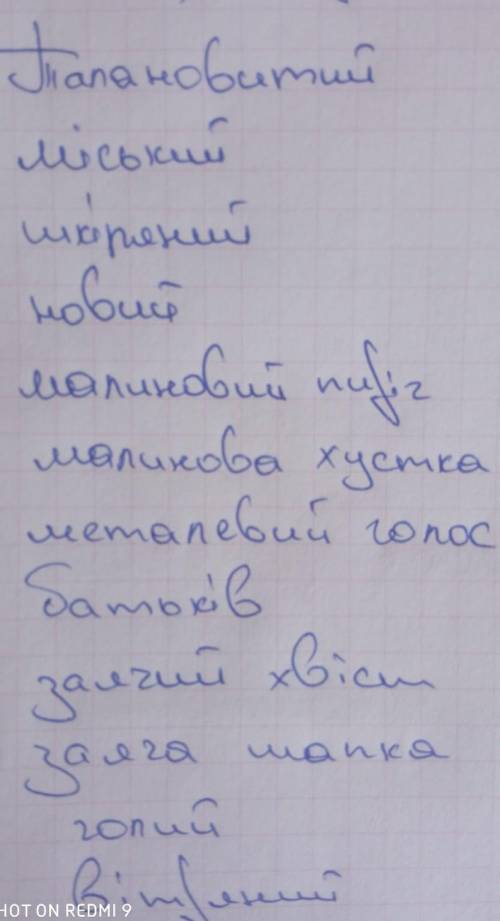 Талановитий
міський
шкіряний
новий
малиновий пиріг
малинова хустка
металевий голос
батьків
заячий хвіст
заяча шапка
голий
вітряний
HOT ON REDMI 9